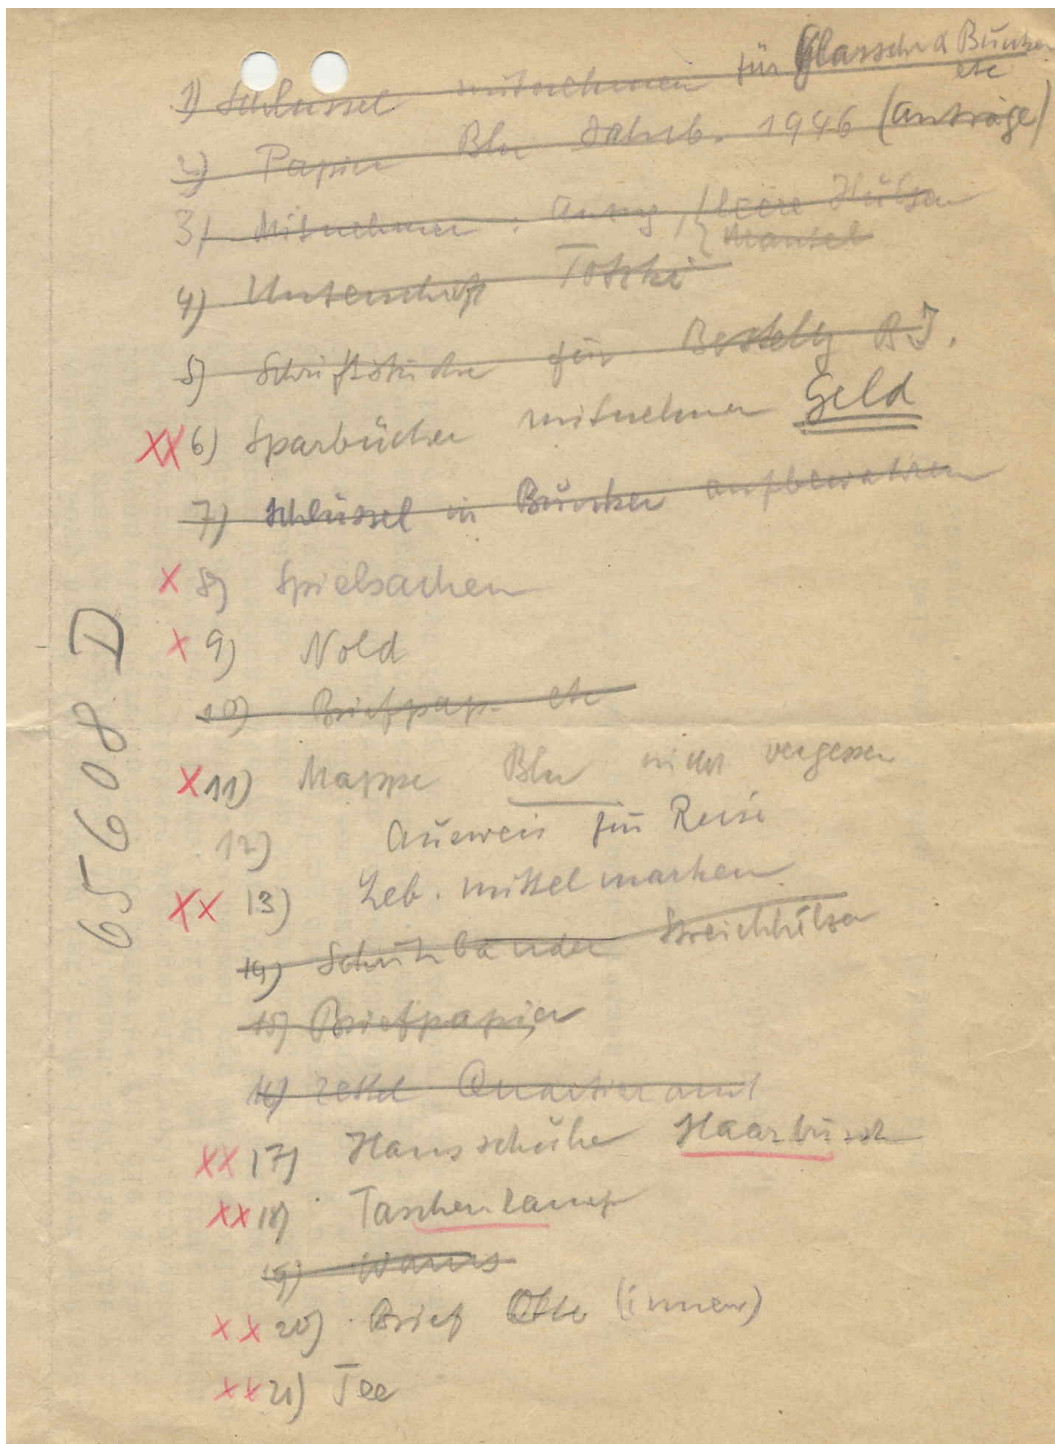 1) Schlüssel mitnehmen für Glasschr & Bunker
etc
2) Papier Blu Jahrb. 1946 (Anträge)
3) Mitnehmen: Anzug, leere Hülsen
Mantel
4) Unterschrift
5) Schriftstücke für
XX 6) Sparbücher mitnehmen Geld
7) Schlüssel in Bunker aufbewahren
X 8) Spielsachen
X 9) Nold
10) Briefpap. etc
X 11) Mappe Blu nicht vergessen
12) Ausweis für Reise
XX 13) Leb. mittelmarken
14) Schutzbänder Streichhölzer
15) Briefpapier
16) Zettel Quartieramt
XX 17) Hausschuhe Haarbürste
XX 18) Taschenlampe
19)
XX 20) Brief Otto (innen)
XX 21) Tee
65608 D